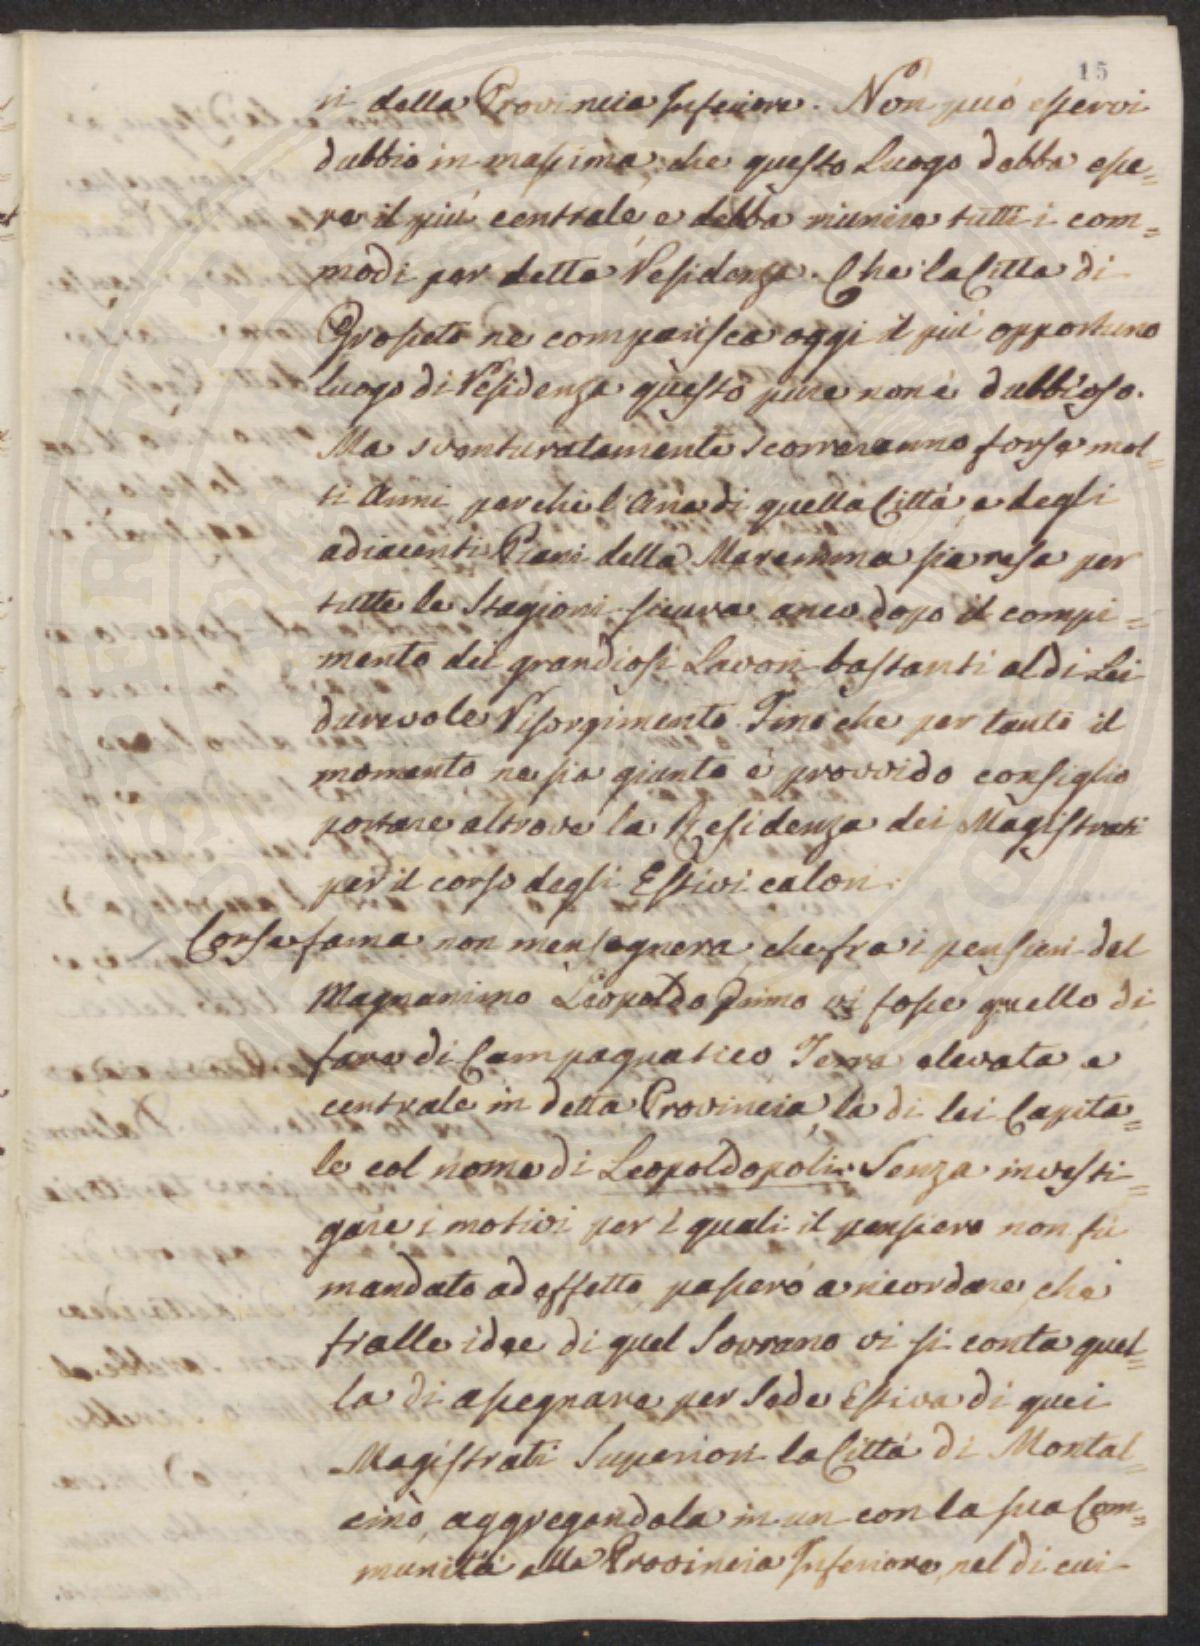 15
ri della Provincia Inferiore. Non può esservi
dubbio in massima, che questo Luogo debba esse=
re il più centrale e debba riunire tutti i com=
modi per detta Residenza. Che la Citta di
Grosseto ne comparisca oggi il più opportuno
luogo di Residenza questo pure non è dubbioso.
Ma sventuratamente scorreranno forse mol=
ti Anni perchè l'Aria di quella Città, e degli
adiacenti Piani della Maremma sia resa per
tutte le Stagioni sicura anco dopo il compi=
mento dei grandiosi Lavori bastanti al di Lei
durevole Risorgimento. Fino che per tanto il
momento ne sia giunto è provvido consiglio
portare altrove la Residenza dei Magistrati
per il corso degli Estivi calori.
Corse fama non mensognera, che fra i pensieri del
Magnanimo Leopoldo Primo vi fosse quello di
fare di Campagnatico Terra elevata e
centrale in detta Provincia, la di lei Capita=
le col nome di Leopoldopoli. Senza investi=
gare i motivi per i quali il pensiero non fù
mandato ad effetto, passerò a ricordare, che
fralle idee di quel Sovrano vi si conta quel=
la di assegnare per Sede Estiva di quei
Magistrati Superiori la Città di Montal=
cino, aggregandola in un con la sua Com=
munità alla Provincia Inferiore, nel di cui